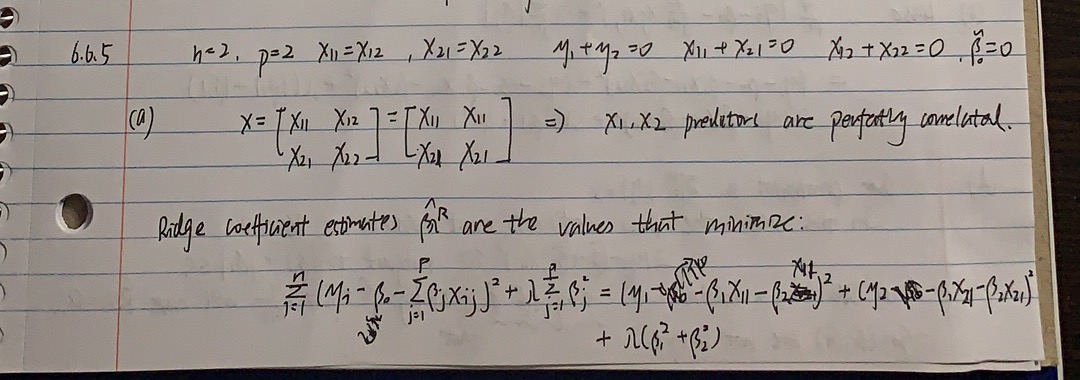 6.6.5 n=2, p=2 X11=X12, X21=X22 y1+y2=0 X11+X21=0 X12+X22=0, β̂0=0
(a) X=[X11 X12 X21 X22]=[X11 X11 X21 X21] => X1, X2 preditors are perfectly correlated.
Ridge coefficient estimates β̂λR are the values that minimize:
Σ_{i=1}^{n} (yi - β0 - Σ_{j=1}^{p} βjXij)² + λ Σ_{j=1}^{p} βj² = (y1 - β1X11 - β2X11)² + (y2 - β1X21 - β2X21)²
+ λ(β1² + β2²)